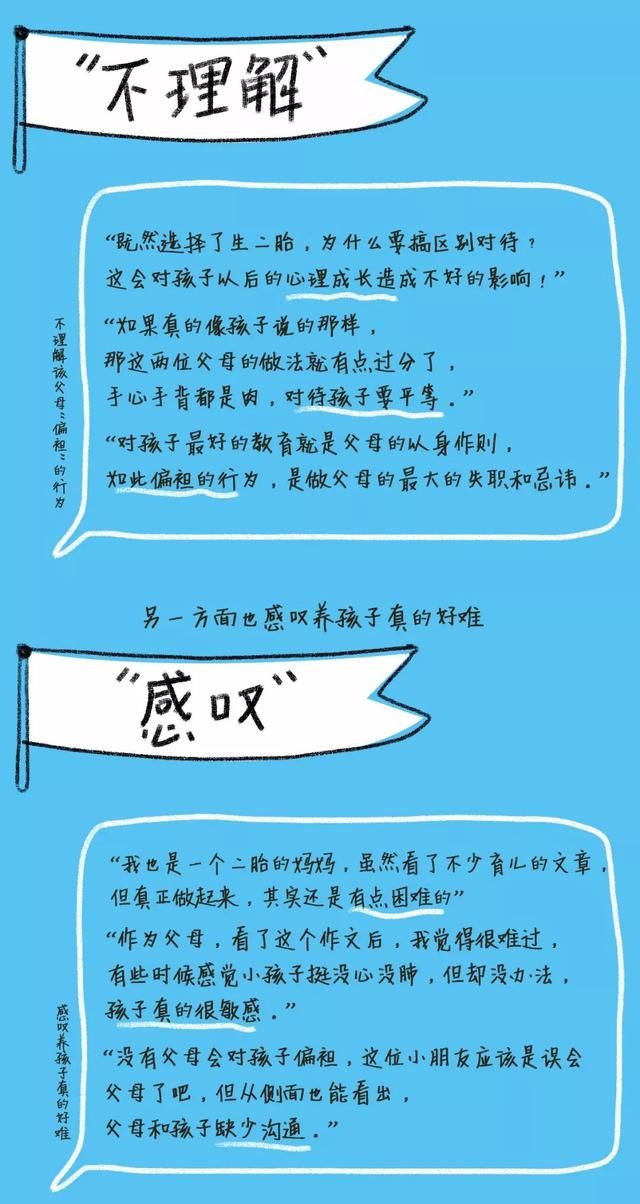 “不理解”
“既然选择了生二胎，为什么要搞区别对待？
这会对孩子以后的心理成长造成不好的影响！”
“如果真的像孩子说的那样，
那这两位父母的做法就有点过分了，
手心手背都是肉，对待孩子要平等。”
“对孩子最好的教育就是父母的以身作则，
如此偏袒的行为，是做父母的最大的失职和忌讳。”
不理解该父母“偏袒”的行为
另一方面也感叹养孩子真的好难
“感叹”
“我也是一个二胎的妈妈，虽然看了不少育儿的文章，
但真正做起来，其实还是有点困难的”
“作为父母，看了这个作文后，我觉得很难过，
有些时候感觉小孩子挺没心没肺，但却没办法，
孩子真的很敏感。”
“没有父母会对孩子偏袒，这位小朋友应该是误会
父母了吧，但从侧面也能看出，
父母和孩子缺少沟通。”
感叹养孩子真的好难